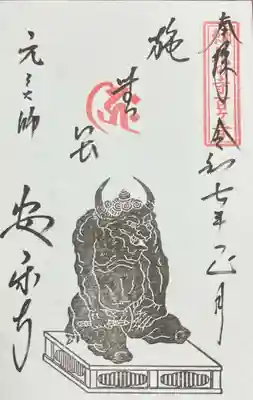 奉拝 令和七年正月
施無畏
元三大師
安楽寺